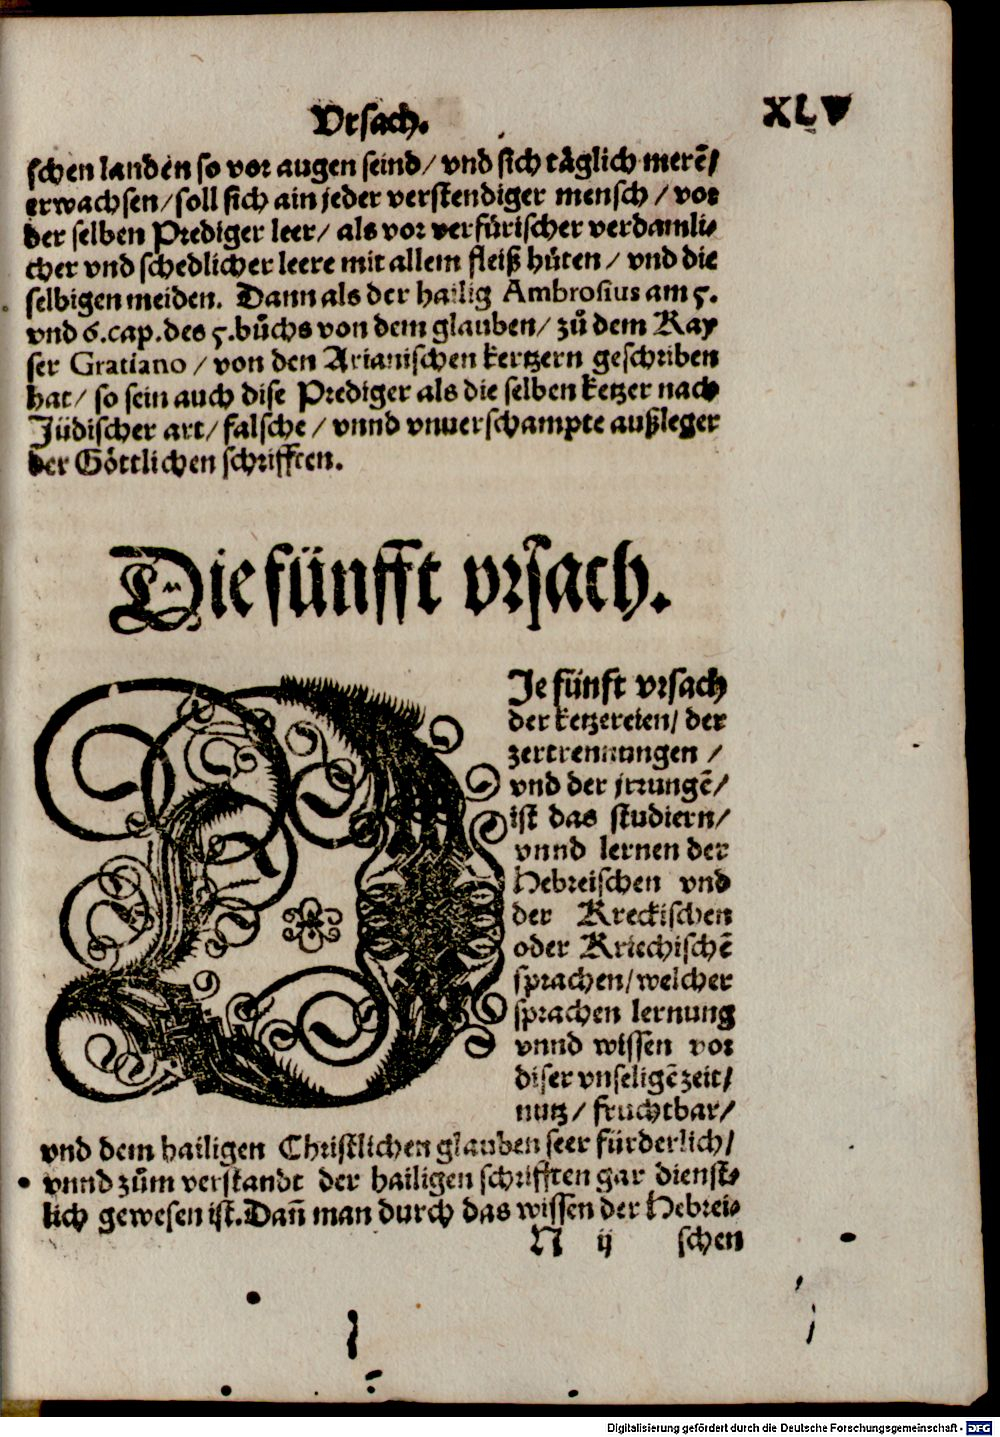 Vrsach. XLV
schen landen so vor augen seind/ vnd sich täglich merē/
erwachsen/ soll sich ain jeder verstendiger mensch/ vor
der selben Prediger leer/ als vor verfürischer verdamli⸗
cher vnd schedlicher leere mit allem fleiß hüten/ vnd die
selbigen meiden. Dann als der hailig Ambrosius am 5.
vnd 6.cap.des 5.bůchs von dem glauben/ zů dem Kay
ser Gratiano/ von den Arianischen kertzern geschriben
hat/ so sein auch dise Prediger als die selben ketzer nach
Jüdischer art/ falsche/ vnnd vnuerschampte außleger
der Göttlichen schrifften.
Die fünfft vrsach.
DJe fünft vrsach
der ketzereien/ der
zertrennungen/
vnd der jrrungē/
ist das studiern/
vnnd lernen der
Hebreischen vnd
der Kreckischen
oder Kriechischē
sprachen/ welcher
sprachen lernung
vnnd wissen vor
diser vnseligē zeit/
nutz/ fruchtbar/
vnd dem hailigen Christlichen glauben seer fürderlich/
vnnd zům verstandt der hailigen schrifften gar dienst⸗
lich gewesen ist. Dañ man durch das wissen der Hebrei⸗
N ij schen
Digitalisierung gefördert durch die Deutsche Forschungsgemeinschaft - DFG